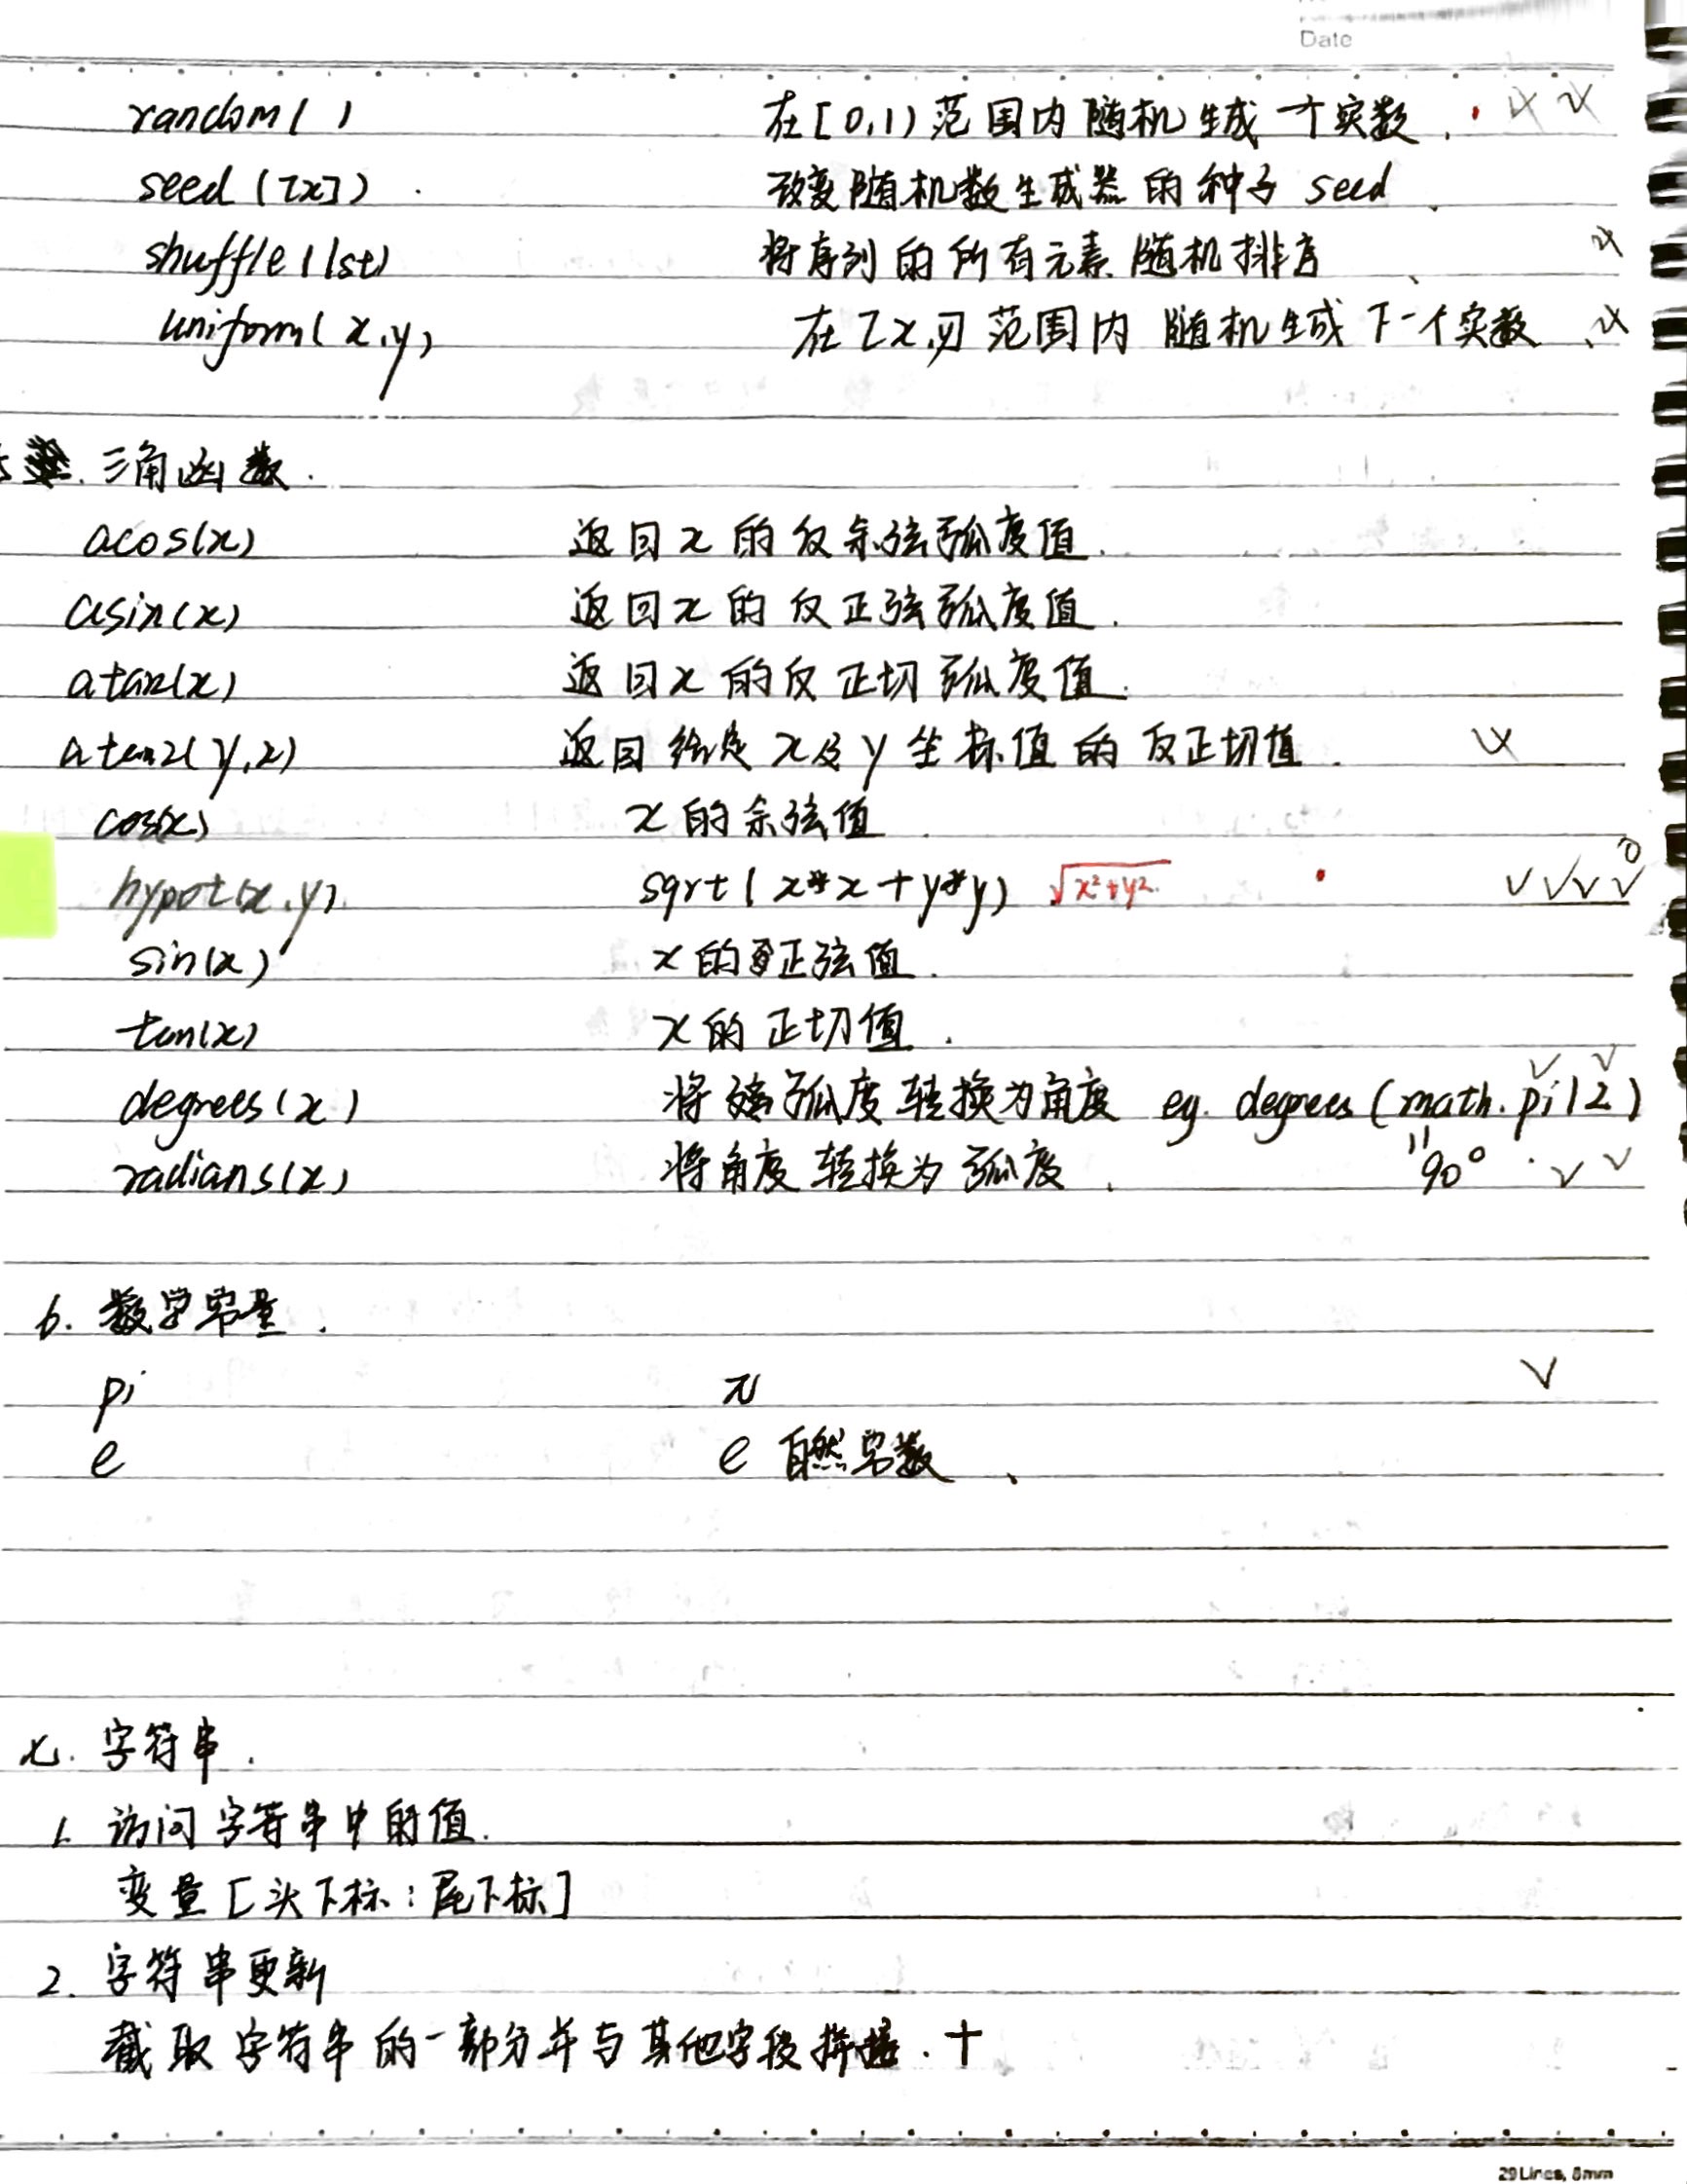 Date
random( ) 在[0,1) 范围内随机生成一个实数.
seed ([x]) 改变随机数生成器的种子 seed
shuffle(lst) 将序列的所有元素随机排序
uniform(x,y) 在[x,y]范围内随机生成下一个实数
三角函数.
acos(x) 返回x的反余弦弧度值.
asin(x) 返回x的反正弦弧度值.
atan(x) 返回x的反正切弧度值.
atan2(y,x) 返回给定x及y坐标值的反正切值.
cos(x) x的余弦值.
hypot(x,y) sqrt(x*x+y*y) √x²+y².
sin(x) x的正弦值.
tan(x) x的正切值.
degrees(x) 将弧度转换为角度 eg. degrees(math.pi/2)
radians(x) 将角度转换为弧度. 90°
6. 数学常量.
pi π
e e 自然常数、
七. 字符串.
1. 访问字符串中的值.
变量[头下标:尾下标]
2. 字符串更新
截取字符串的一部分并与其他字段拼接.+
29 Lines, 8mm